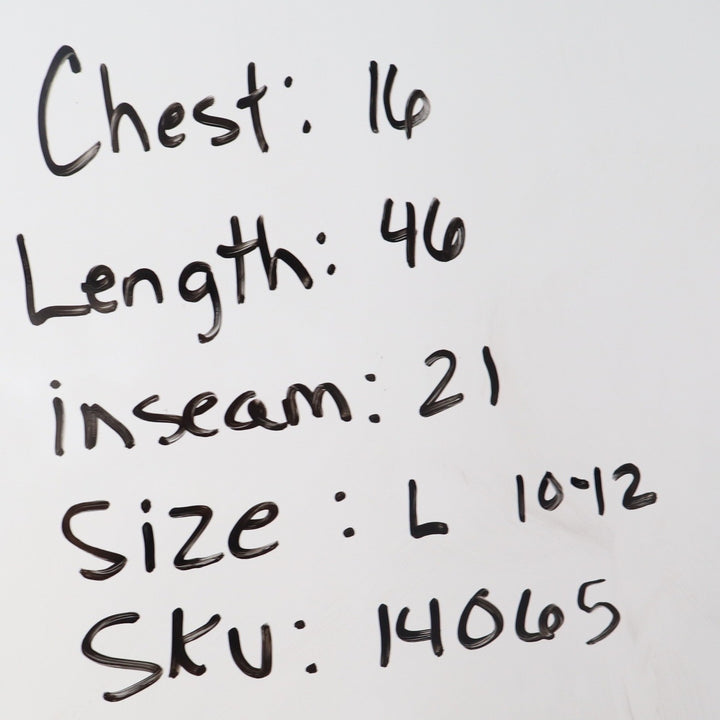 Chest: 16
Length: 46
inseam: 21
Size : L 10-12
Sku: 14065